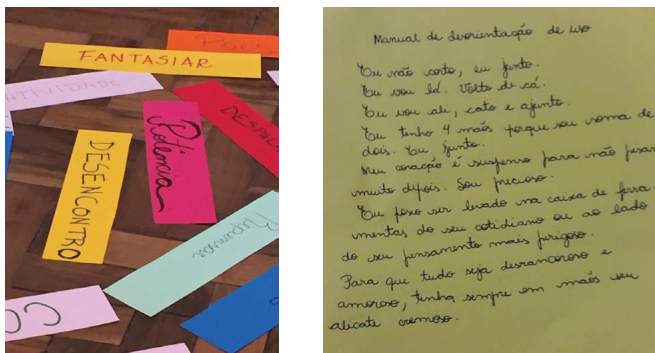 FANTASIAR
TIVIDADE
DESENCONTRO
Potência
CO
Manual de desorientação de uso
Eu não corto, eu junto.
Eu vou lá. Volto de cá.
Eu vou ali, cato e ajunto.
Eu tenho 4 mãos porque sou soma de
dois. Eu junto.
Meu coração é suspenso para não pesar
muito depois. Sou precioso.
Eu posso ser levado na caixa de ferra
mentas do seu cotidiano ou ao lado
do seu pensamento mais perigoso.
Para que tudo seja desrancoroso e
amoroso, tenha sempre em mãos seu
alicate cremoso.